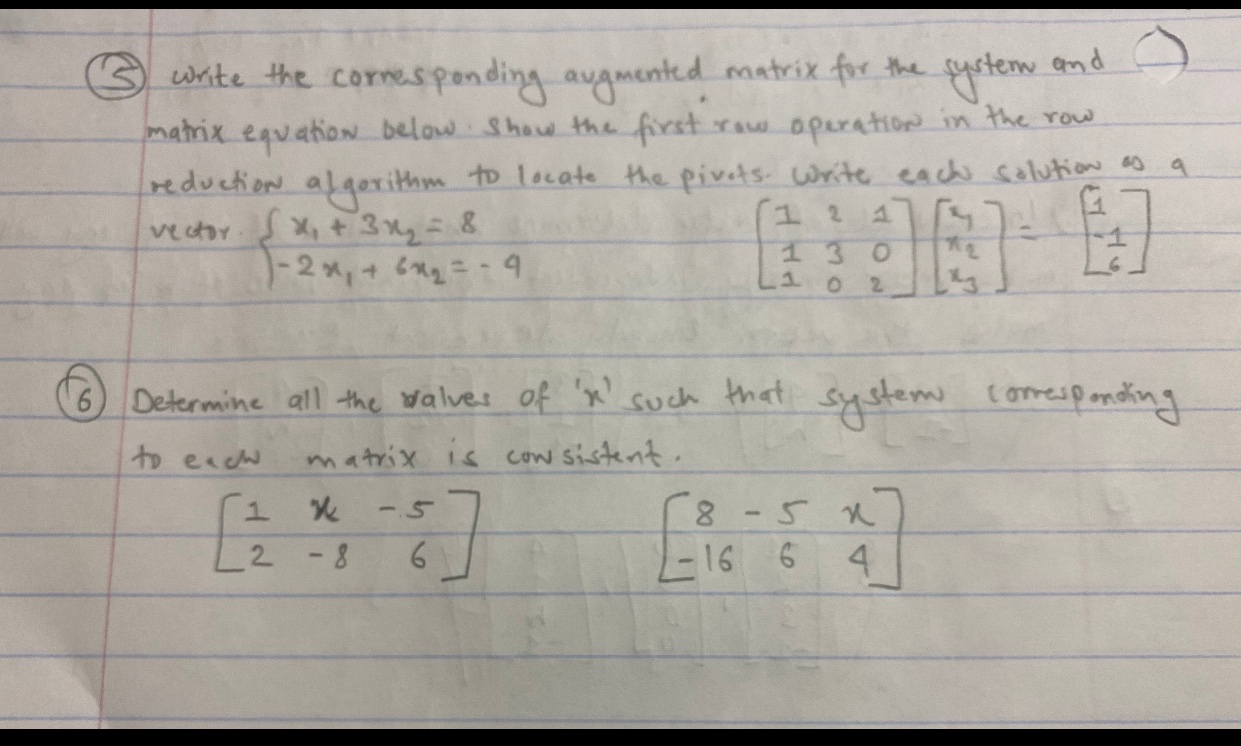 5 Write the corresponding augmented matrix for the system and
matrix equation below. Show the first row operation in the row
reduction algorithm to locate the pivots. Write each solution as a
vector. { x₁ + 3x₂ = 8 [1 2 1] [x₁] = [1]
-2x₁ + 6x₂ = -4 [1 3 0] [x₂] [-1]
[1 0 2] [x₃] [6]
6 Determine all the values of 'x' such that system corresponding
to each matrix is consistent.
[1 x -5] [8 -5 x]
[2 -8 6] [-16 6 4]